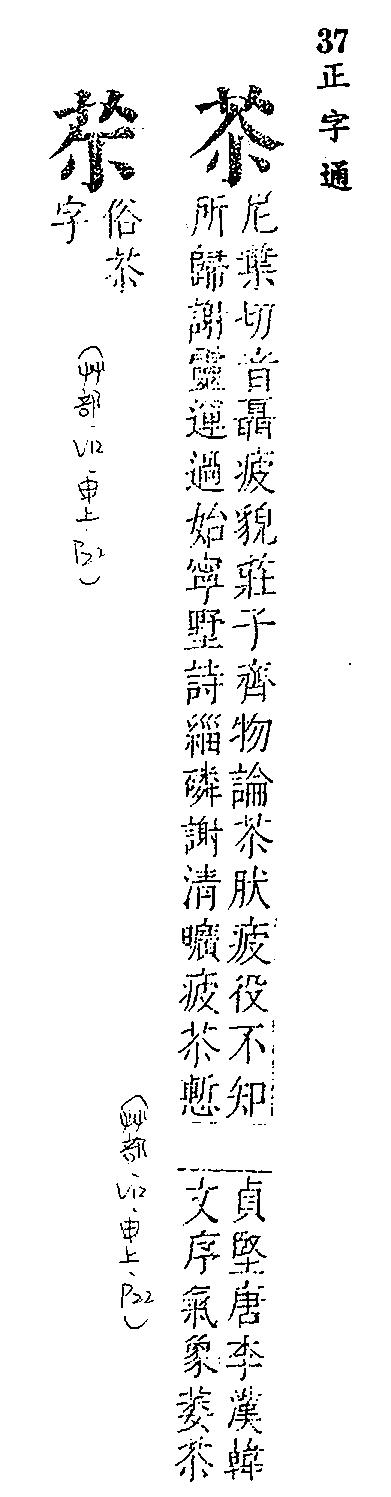 37 正字通
苶
尼葉切音聶疲貌莊子齊物論苶肰疲役不知
所歸謝靈運過始寧墅詩緇磷謝清曠疲苶慙
貞堅唐李漢韓
文序氣象萎苶
(艸部、V12、申上、P22)
俗苶
字
(艸部、V12、申上、P22)